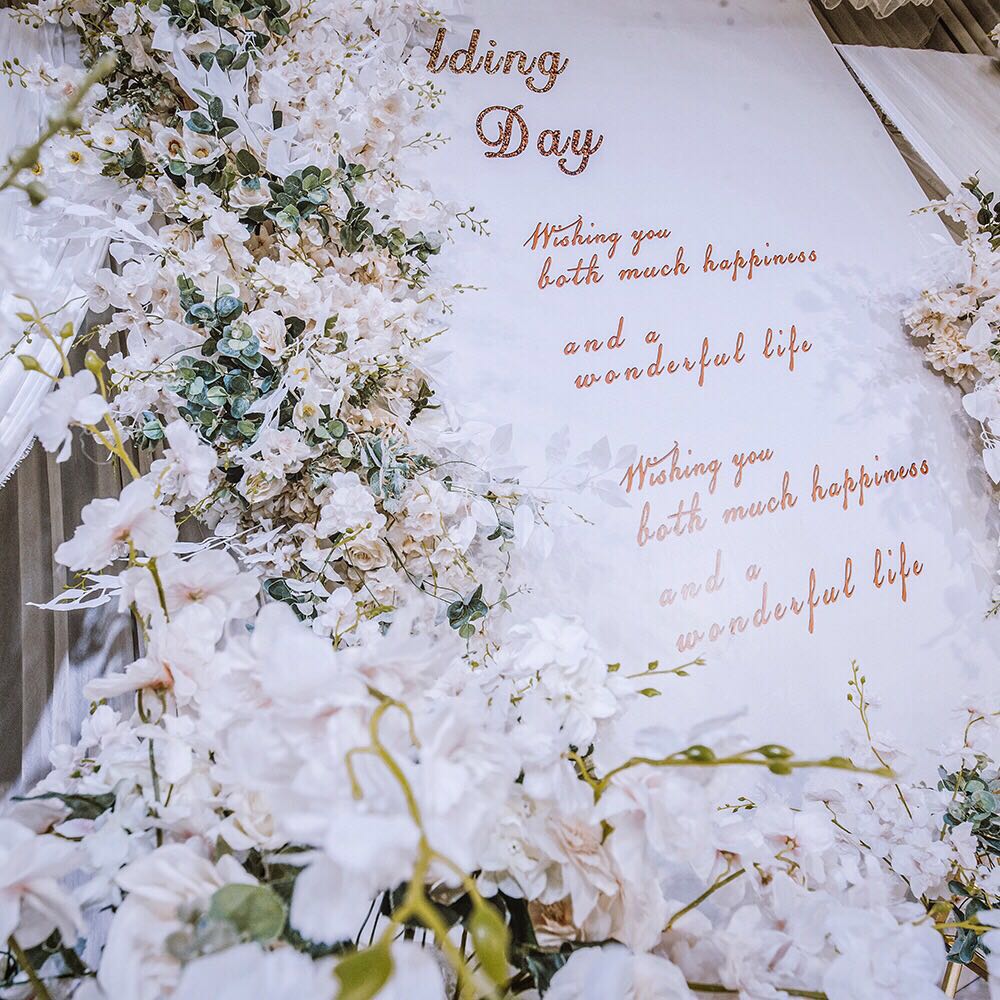 lding
Day
Wishing you
both much happiness
and a
wonderful life
Wishing you
both much happiness
and a
wonderful life